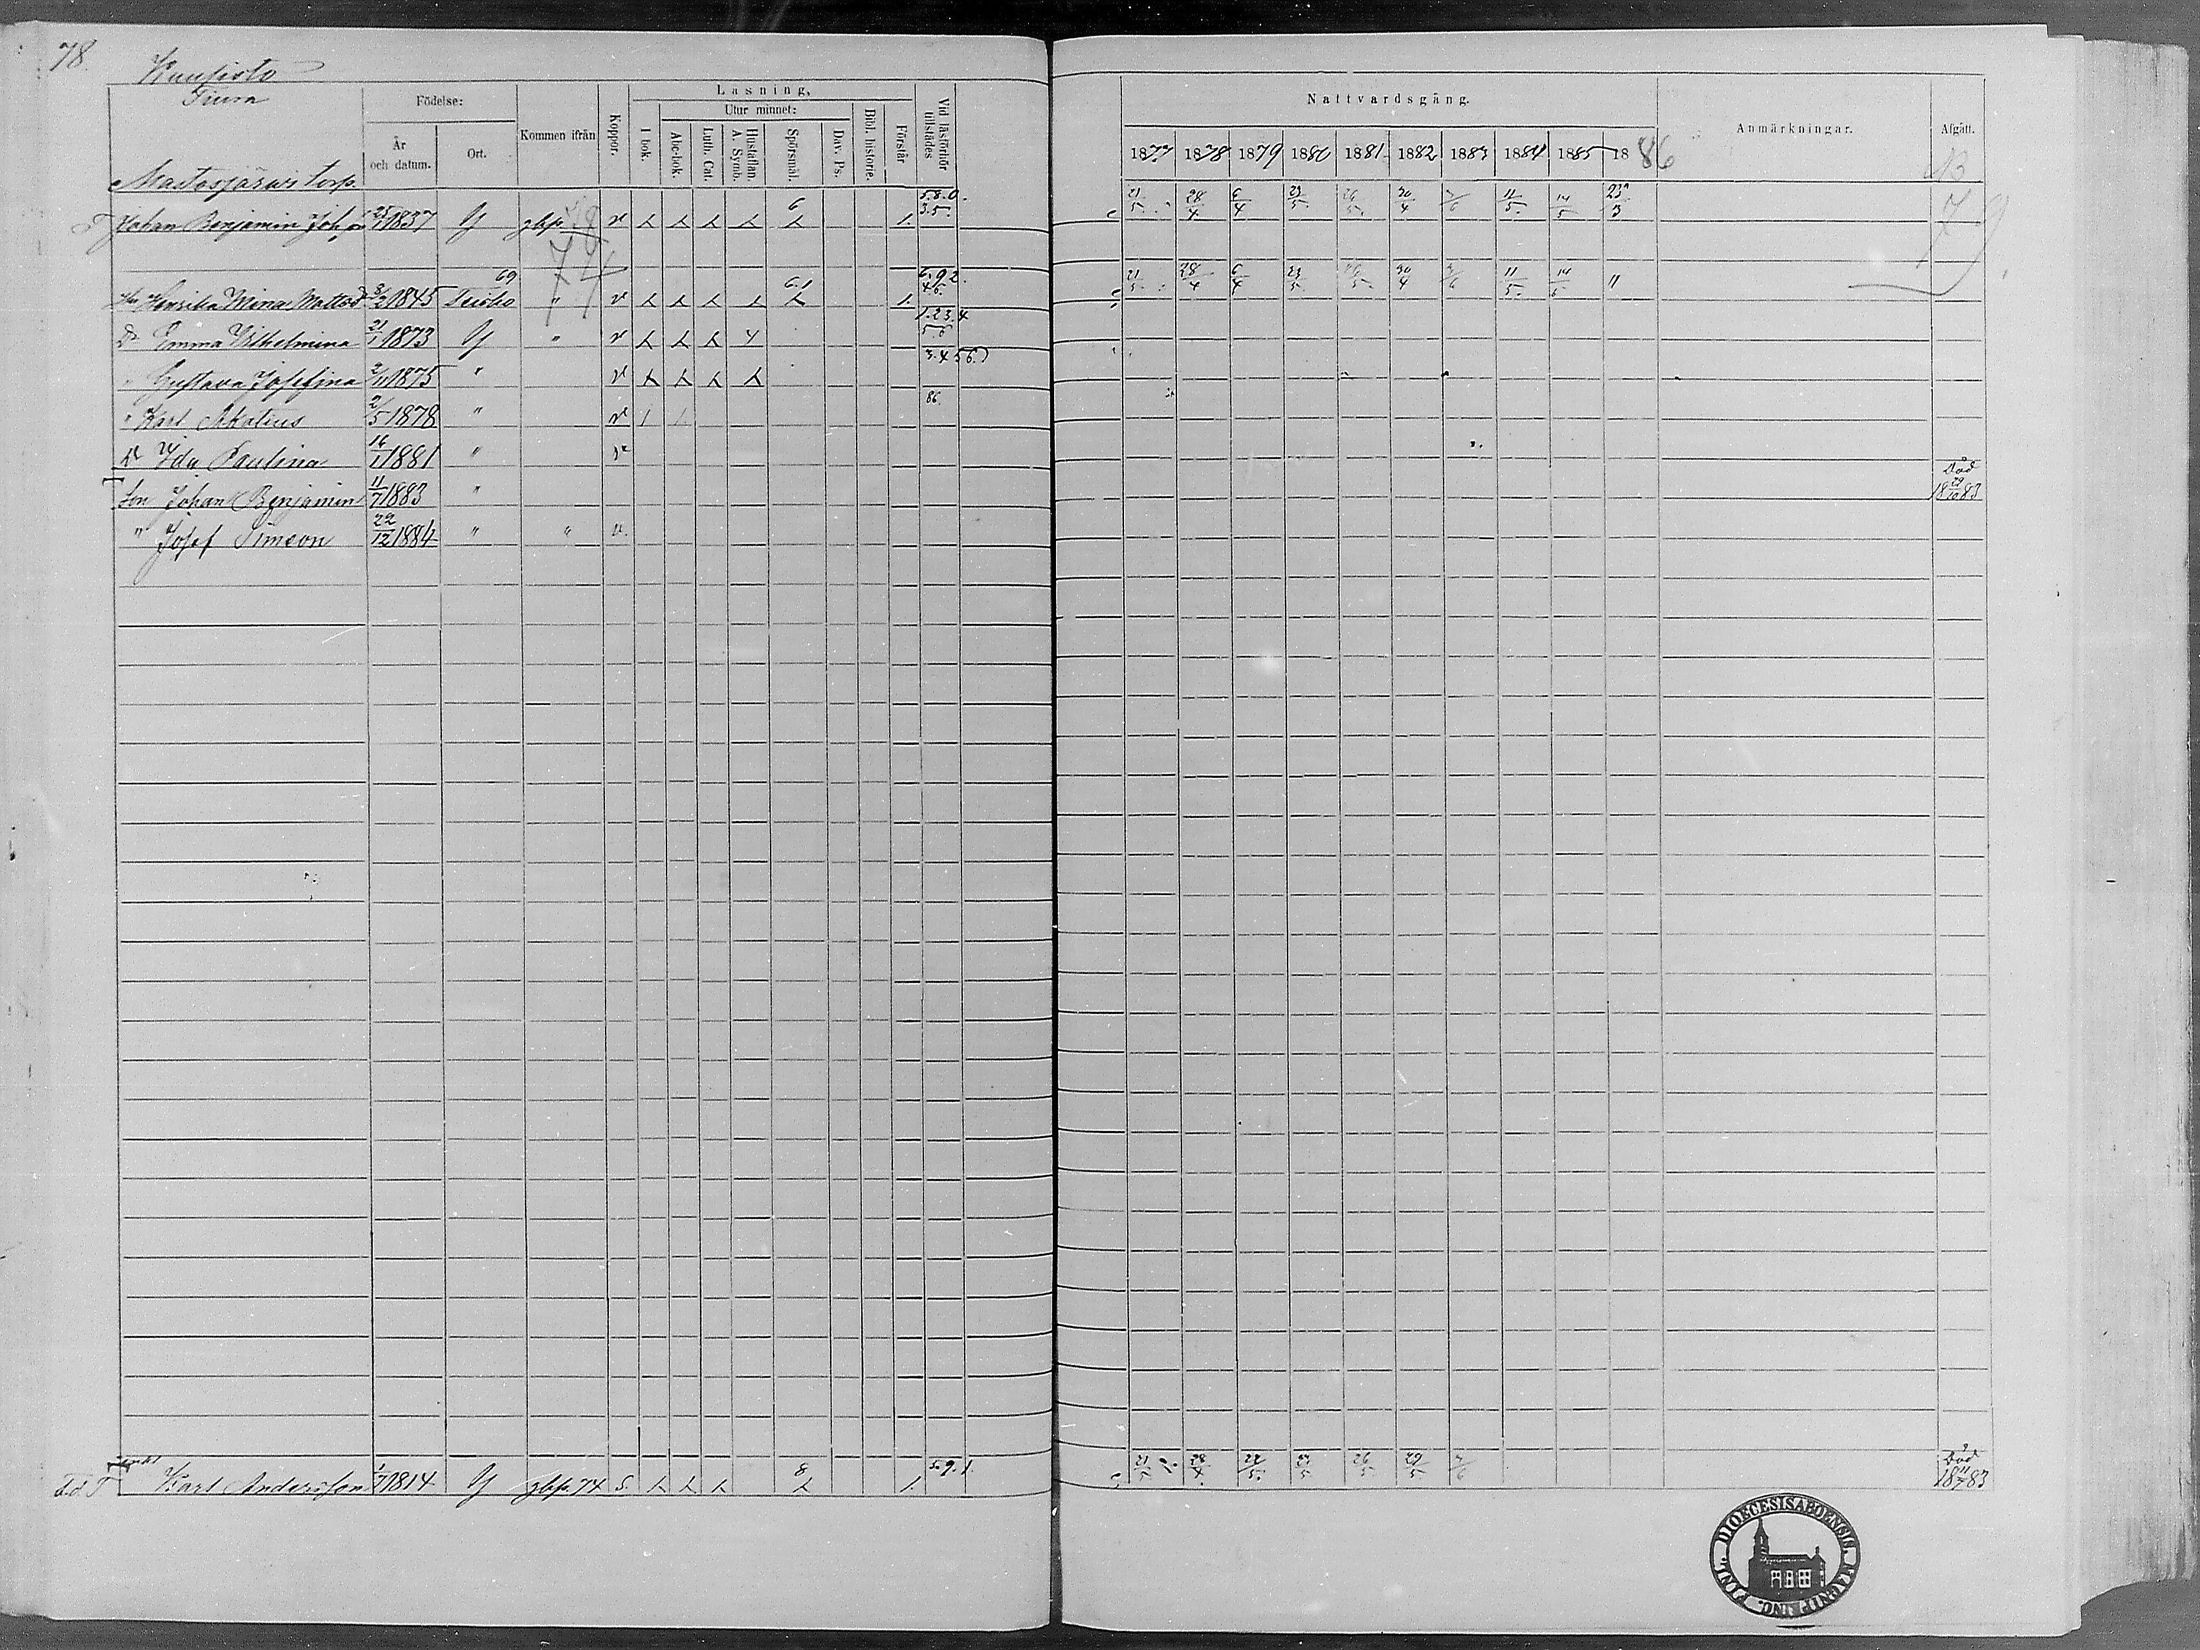 78.
Kuusisto
Födelse:
Kommen ifrån
Koppor.
Läsning,
I bok.
Utur minnet:
Abc-bok.
Luth. Cat.
Hustaflan. A. Symb.
Spörsmål.
Dav. Ps.
Bibl. historie.
Förstår
Vid läsförhör tillstädes
År och datum.
Ort.
Nattvardsgång.
1877 1878 1879 1880 1881 1882 1883 1884 1885 1886
Anmärkningar.
Afgått.
torp.
T Johan Benjamin 25/1 1837 gbp. 78 v 6 1. 5.8.0. 3.5. 21/5 28/4 6/4 23/5 26/5 30/4 3/6 11/5 14/5 23/3 79.
74
Henrika Mina Mattsd 3/2 1845 69 " v 1. 21/5 28/4 6/4 23/5 26/5 30/4 3/6 11/5 14/5 "
Dr Emma Vilhelmina 21/1 1873 " v 1.2.3.4 5.6
" Gustava Josefina 2/11 1875 " v 3.4.5.6.
" Karl 2/5 1878 " v 86.
Dr Ida Paulina 16/1 1881 " v
Son Johan Benjamin 11/7 1883 " Död 18 29/10 83
" Josef Simeon 22/12 1884 " " v.
F.d. T Karl Andersson 1/7 1814 gbp. 74 S. 8 1. 5.9.1. 21/5 28/4 22/5 23/5 26/5 29/5 3/6 Död 18 11/7 83
FINL. DIOECESIS ABOENSIS. MAGNI PRINC.